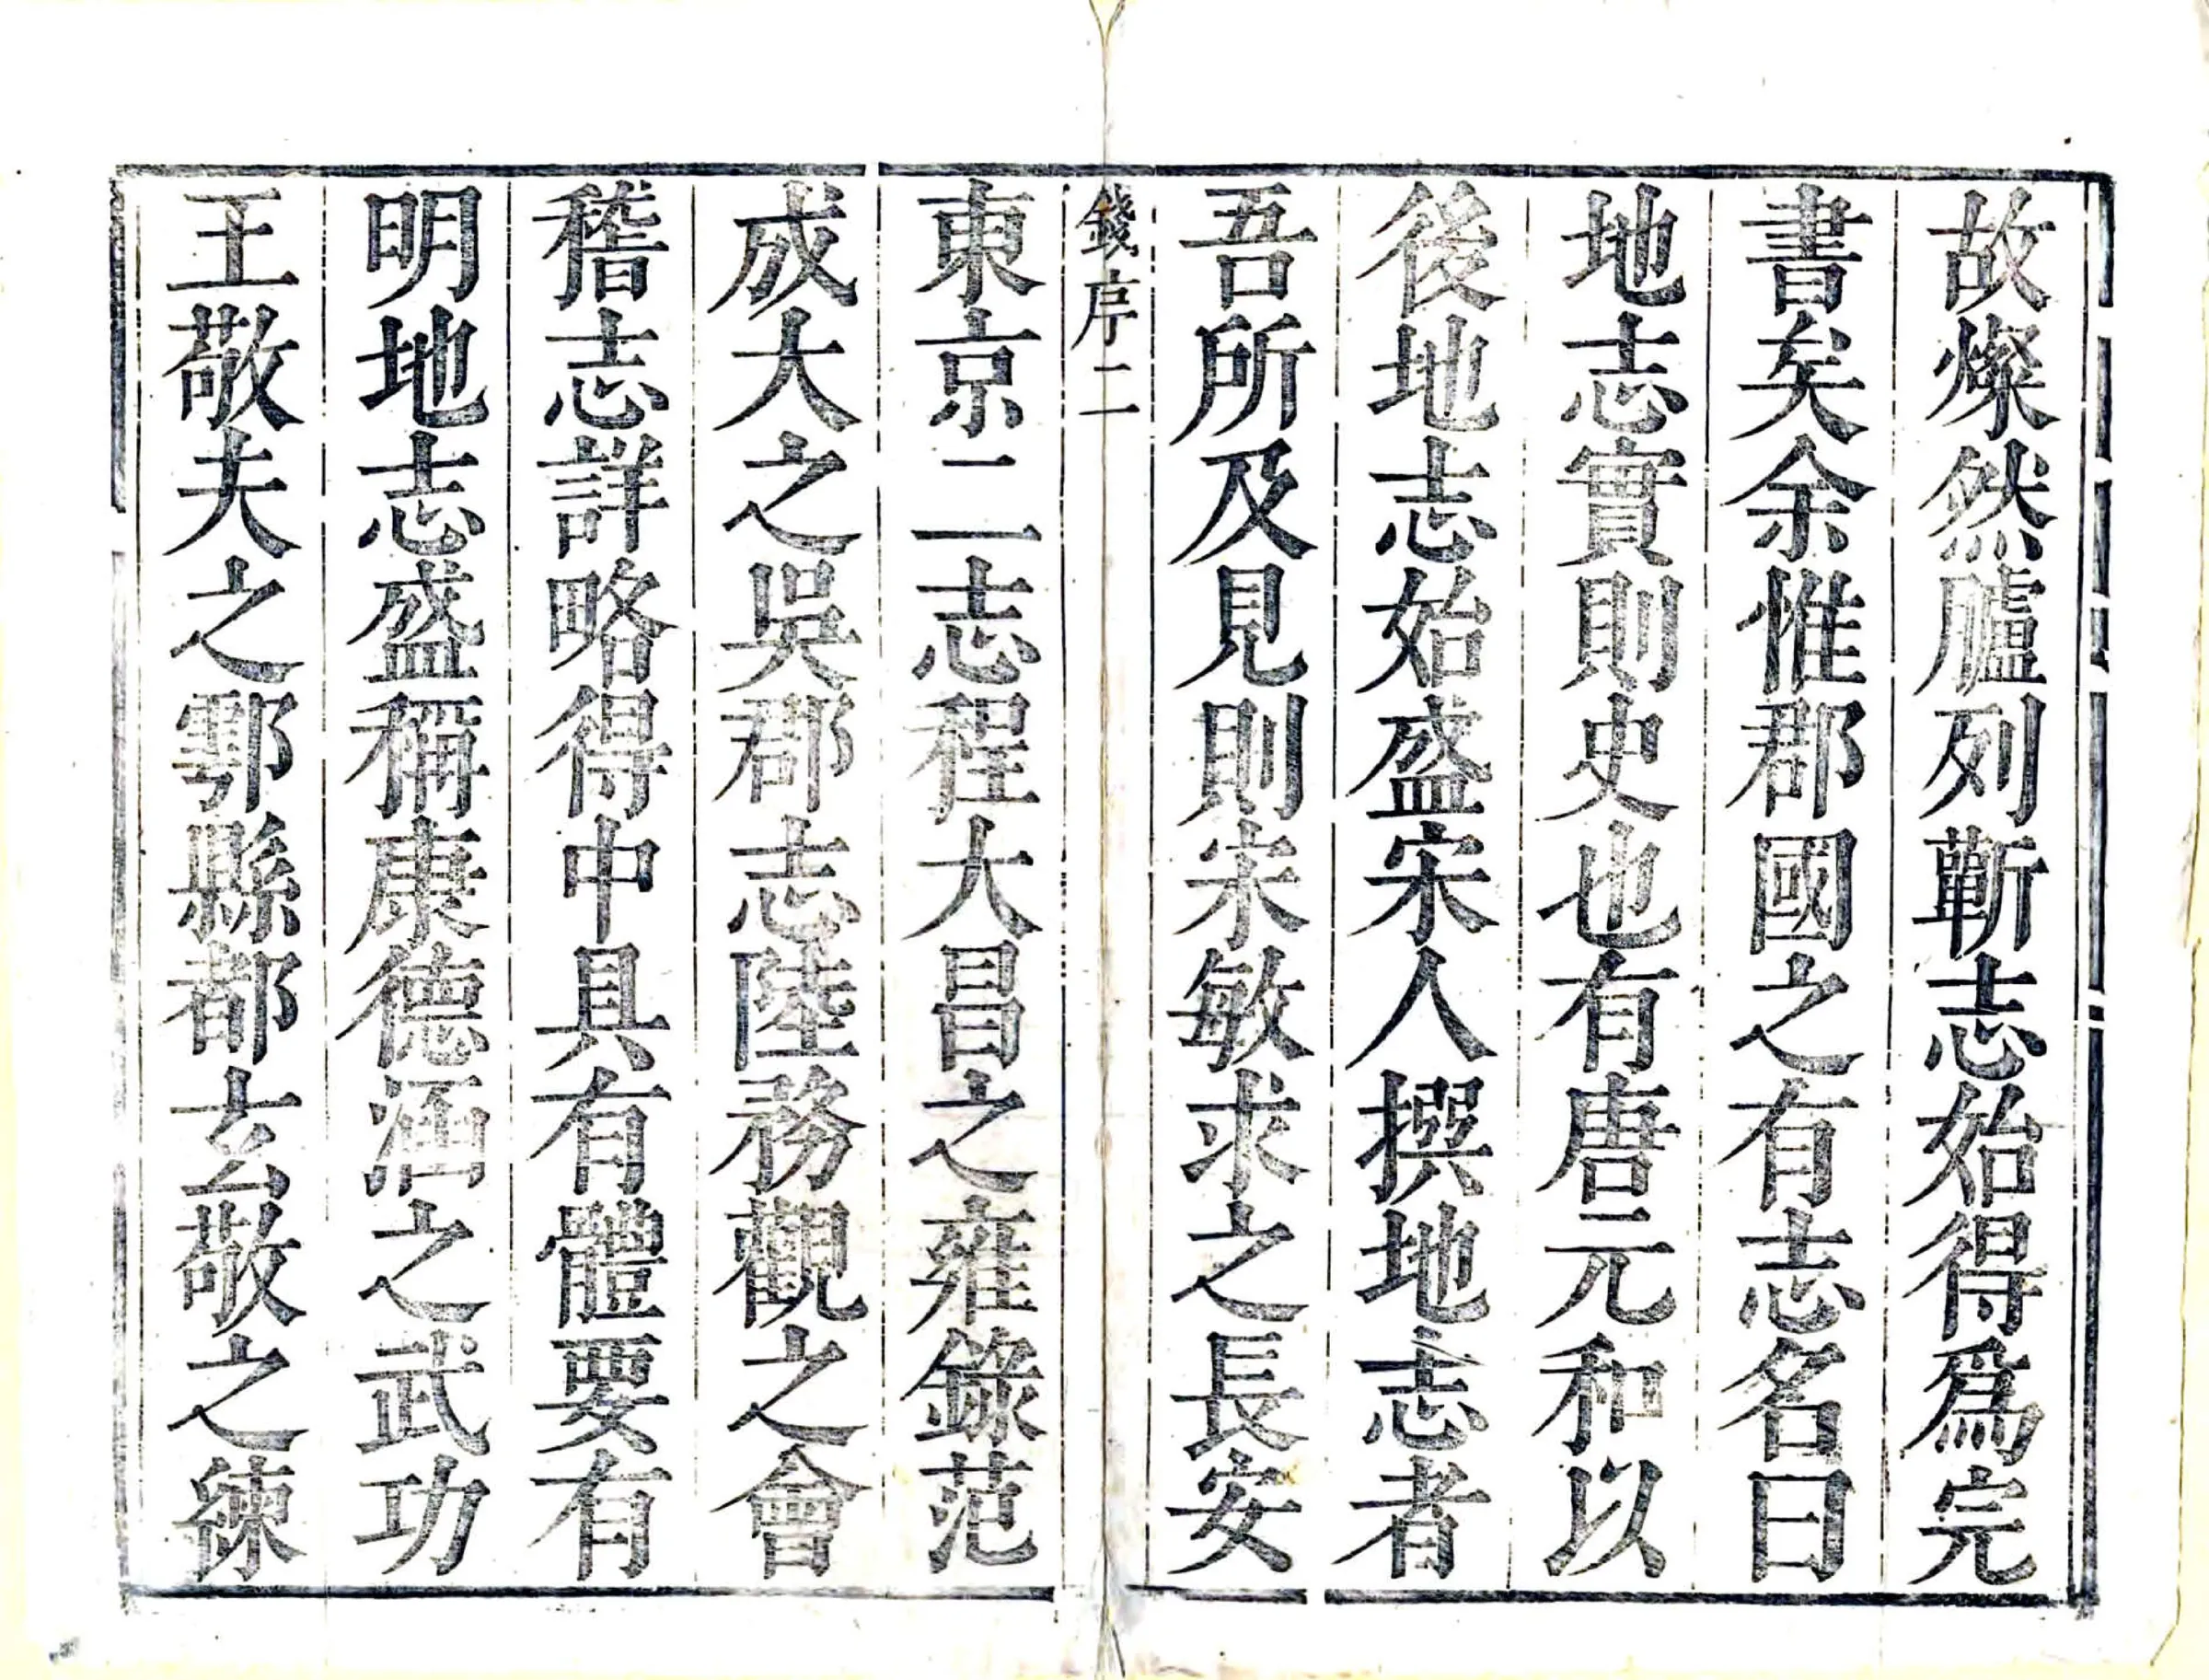 故燦然臚列蘄志始得爲完
書矣余惟郡國之有志名曰
地志實則史也有唐元和以
後地志始盛宋人撰地志者
吾所及見則宋敏求之長安
錢序二
東京二志程大昌之雍錄范
成大之吳郡志陸務觀之會
稽志詳略得中具有體要有
明地志盛稱康德涵之武功
王敬夫之鄠縣都玄敬之練